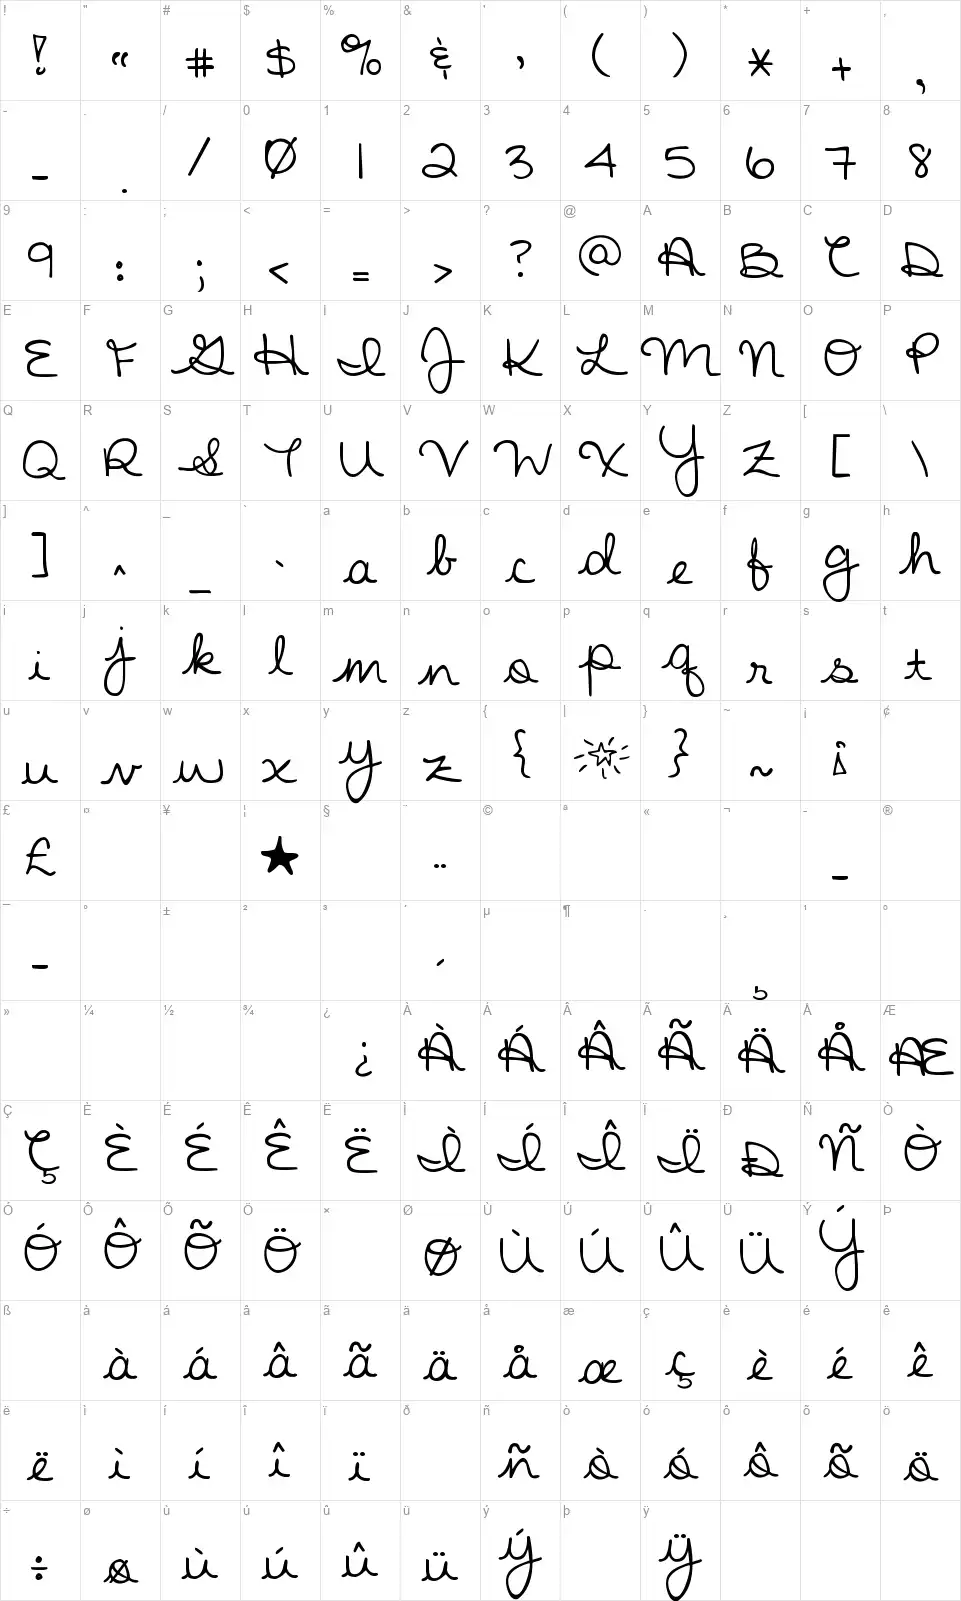 ! " # $ % & ' ( ) * + ,
! “ # $ % & ' ( ) * + ,
- . / 0 1 2 3 4 5 6 7 8
- . / 0 1 2 3 4 5 6 7 8
9 : ; < = > ? @ A B C D
9 : ; < = > ? @ A B C D
E F G H I J K L M N O P
E F G H I J K L M N O P
Q R S T U V W X Y Z [ \
Q R S T U V W X Y Z [ \
] ^ _ ` a b c d e f g h
] ^ _ ` a b c d e f g h
i j k l m n o p q r s t
i j k l m n o p q r s t
u v w x y z { | } ~ ¡ ¢
u v w x y z { } ~ ¡
£ ¤ ¥ ¦ § ¨ © ª « ¬ - ®
£ ★ ¨ -
¯ ° ± ² ³ ´ µ ¶ · ¸ ¹ º
¯ ´ ¸
» ¼ ½ ¾ ¿ À Á Â Ã Ä Å Æ
¿ À Á Â Ã Ä Å Æ
Ç È É Ê Ë Ì Í Î Ï Ð Ñ Ò
Ç È É Ê Ë Ì Í Î Ï Ð Ñ Ò
Ó Ô Õ Ö × Ø Ù Ú Û Ü Ý Þ
Ó Ô Õ Ö Ø Ù Ú Û Ü Ý
ß à á â ã ä å æ ç è é ê
à á â ã ä å æ ç è é ê
ë ì í î ï ð ñ ò ó ô õ ö
ë ì í î ï ñ ò ó ô õ ö
÷ ø ù ú û ü ý þ ÿ
÷ ø ù ú û ü ý ÿ